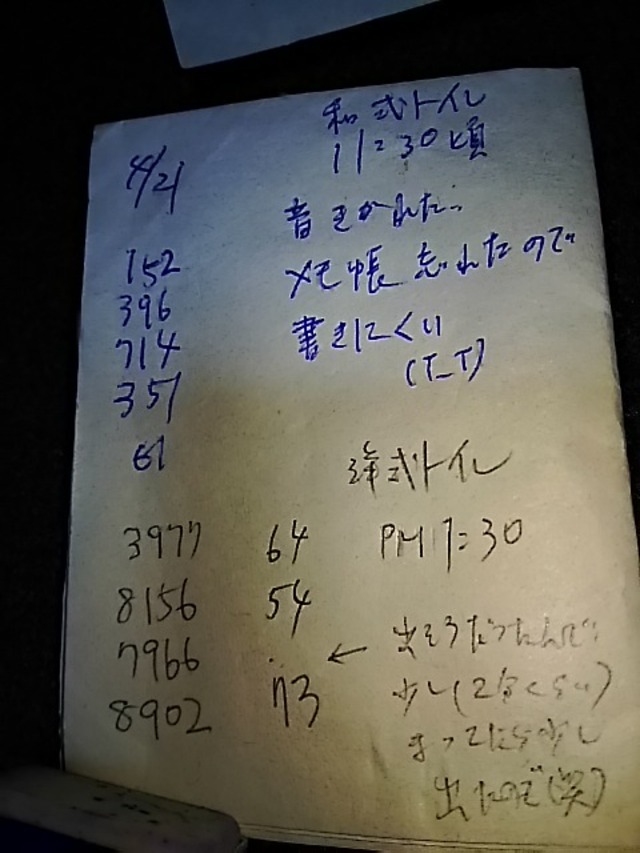 和式トイレ
11:30頃
4/21
音きかれた..
メモ帳忘れたので
書きにくい
(T_T)
152
396
714
351
61
洋式トイレ
PM 1:30
3977 64
8156 54
7966 ..
8902 73
← 出そうだったんで
少し(2分くらい)
まってたら少し
出たので(笑)